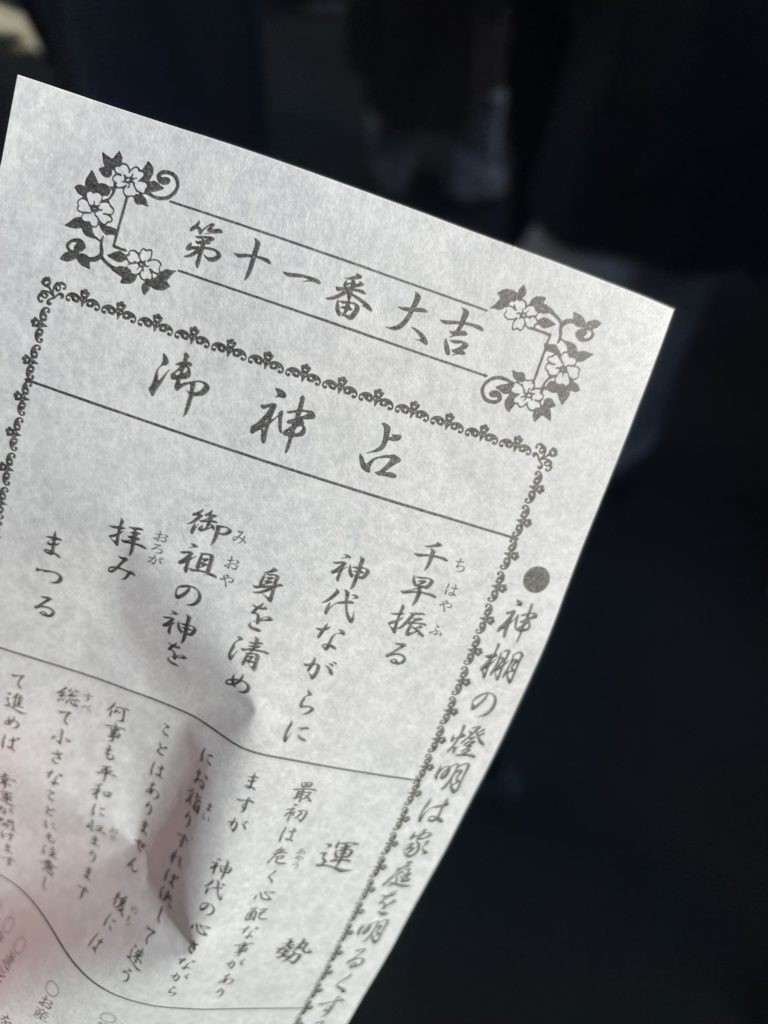 第十一番 大吉
御神占
●神棚の燈明は家庭を明るくす
千早振る
ち はや ふ
神代ながらに
身を清め
御祖の神を
み おや
拝み
おろが
まつる
運勢
最初は危く心配な事があり
ますが 神代の心さながら
にお詣りすれば決して迷う
まい
ことはありません 後には
のち
何事も平和に収まります
総て小さなことにも注意し
すべ
て進めば 幸運が続けます
○お産